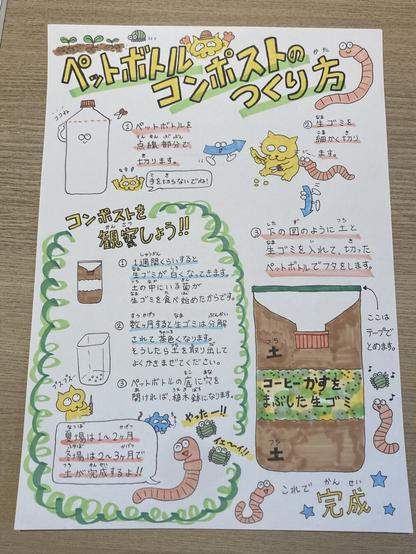 ペットボトル
コンポストの
つくり方
ココを
① ペットボトルを
点線部分で
切ります。
手を切らないでね!
② 生ゴミを
細かく切り
ます。
③ 下の図のように土と
生ゴミを入れて、切った
ペットボトルでフタをします。
ここは
テープでと
めます。
土
コーヒーかすを
まぶした生ゴミ
土
これで
完成
コンポストを
観察しよう!!
① 1週間くらいすると
生ゴミが白くなってきます。
土の中にいる菌が
生ゴミを食べ始めたからです。
② 数ヶ月すると生ゴミは分解
されて茶色くなります。
そうしたら土を取り出して
よくかきまぜてください。
③ ペットボトルの底に穴を
開ければ、植木鉢になります。
夏場は1〜2ヶ月
冬場は2〜3ヶ月で
土が完成するよ!!
やったー!!
イェーイ!!